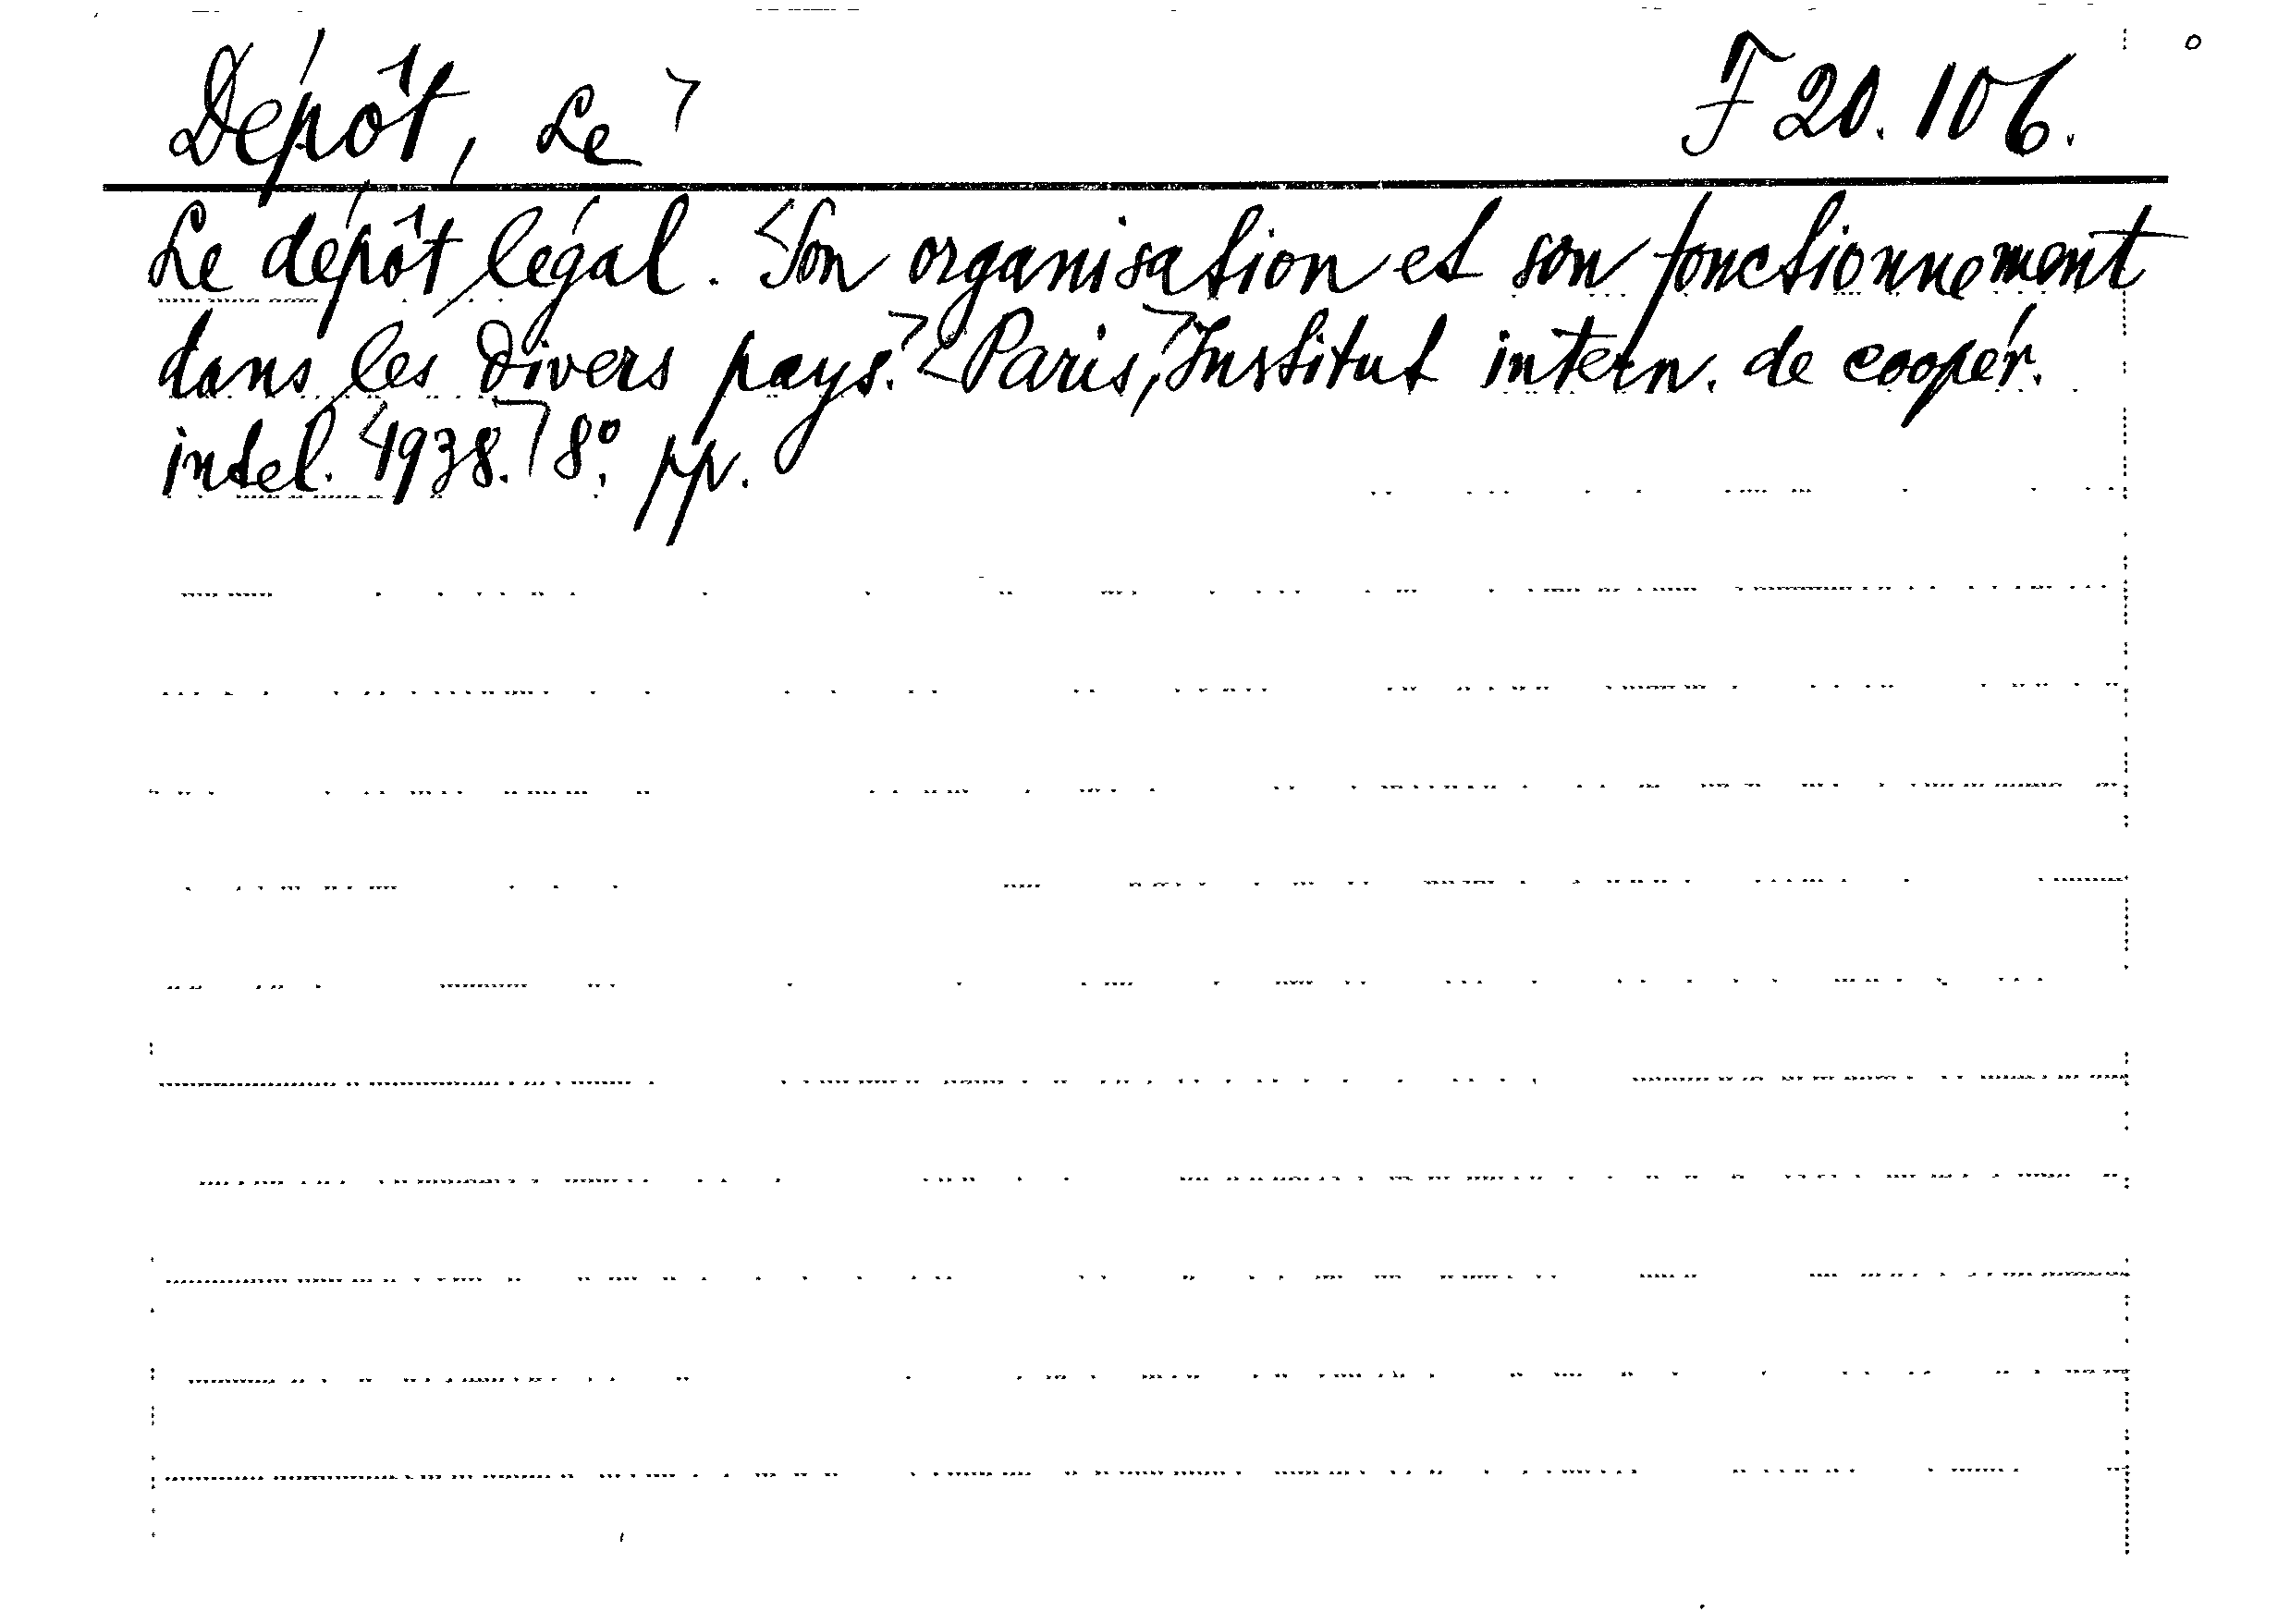 Dépôt, Le F 20.106.
Le dépôt légal. Son organisation et son fonctionnement
dans les divers pays. Paris, Institut intern. de coopér.
intel. 1938. 8°. pp.